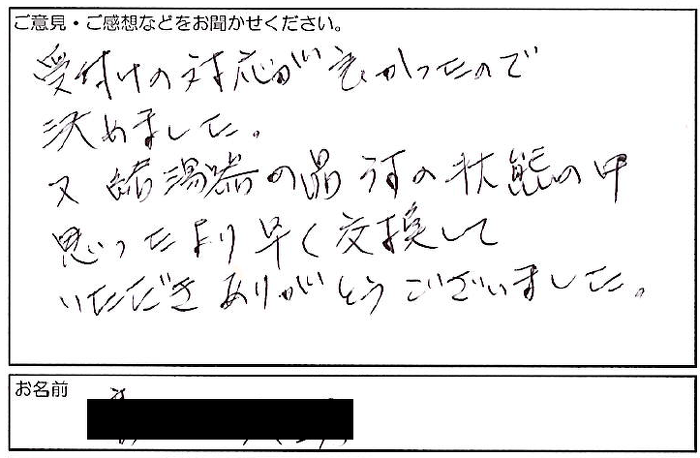 ご意見・ご感想などをお聞かせください。
受付けの対応が良かったので
決めました。
又 給湯器の品うすの状態の中
思ったより早く交換して
いただきありがとうございました。
お名前